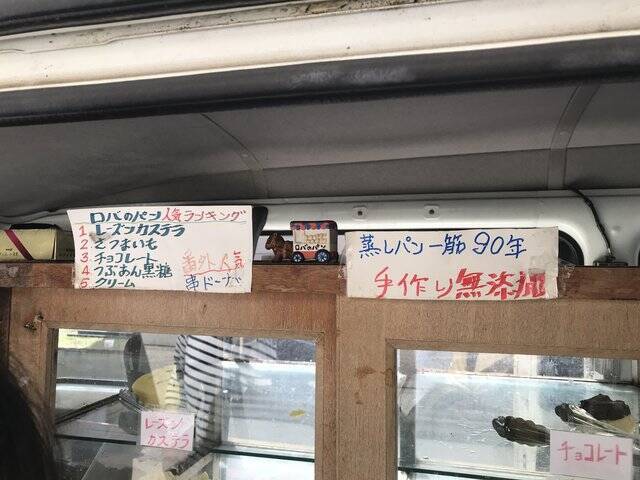 ロバのパン人気ランキング
1 レーズンカステラ
2 さつまいも
3 チョコレート
4 つぶあん黒糖
5 クリーム
番外人気
串ドーナツ
ロバのパン
蒸しパン一筋90年
手作り無添加
レーズン
カステラ
チョコレート